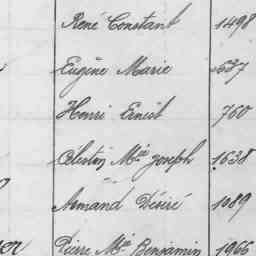 René Constant 1498
Eugène Marie 1637
Henri Ernest 760
Célestin Mie Joseph 1638
Armand Désiré 1089
Pierre Mie Benjamin 1966